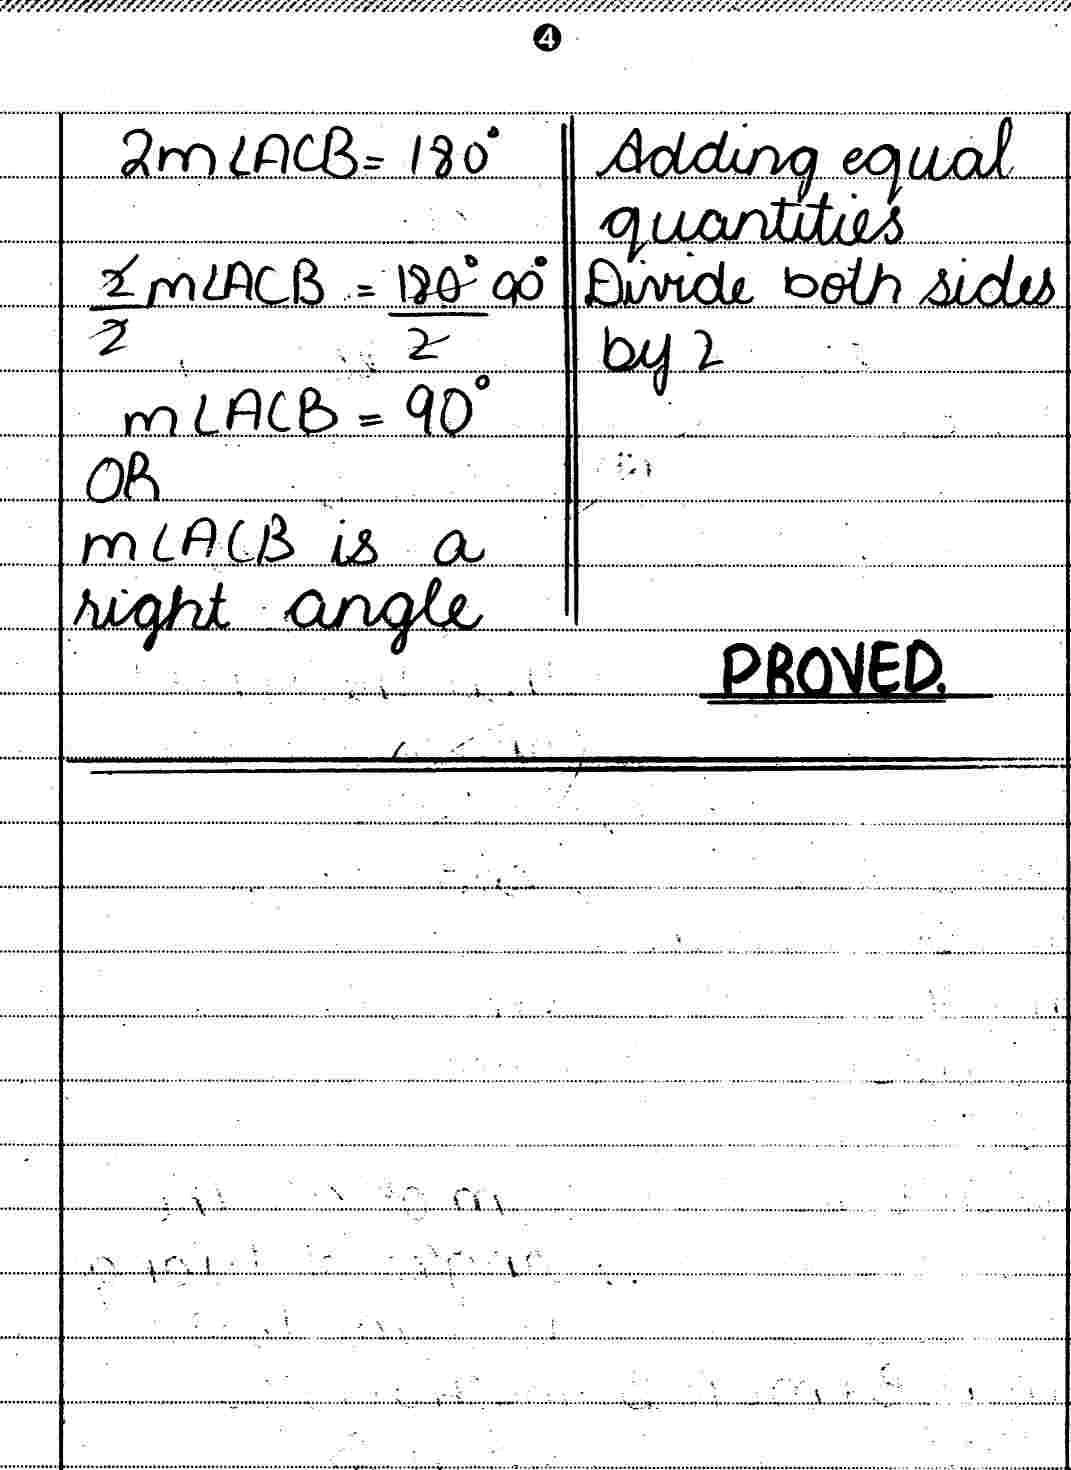 4
2m∠ACB = 180° Adding equal
quantities
2̸m∠ACB = 1̸8̸0̸° 90° Divide both sides
2̸ 2̸ by 2
m∠ACB = 90°
OR
m∠ACB is a
right angle
PROVED.